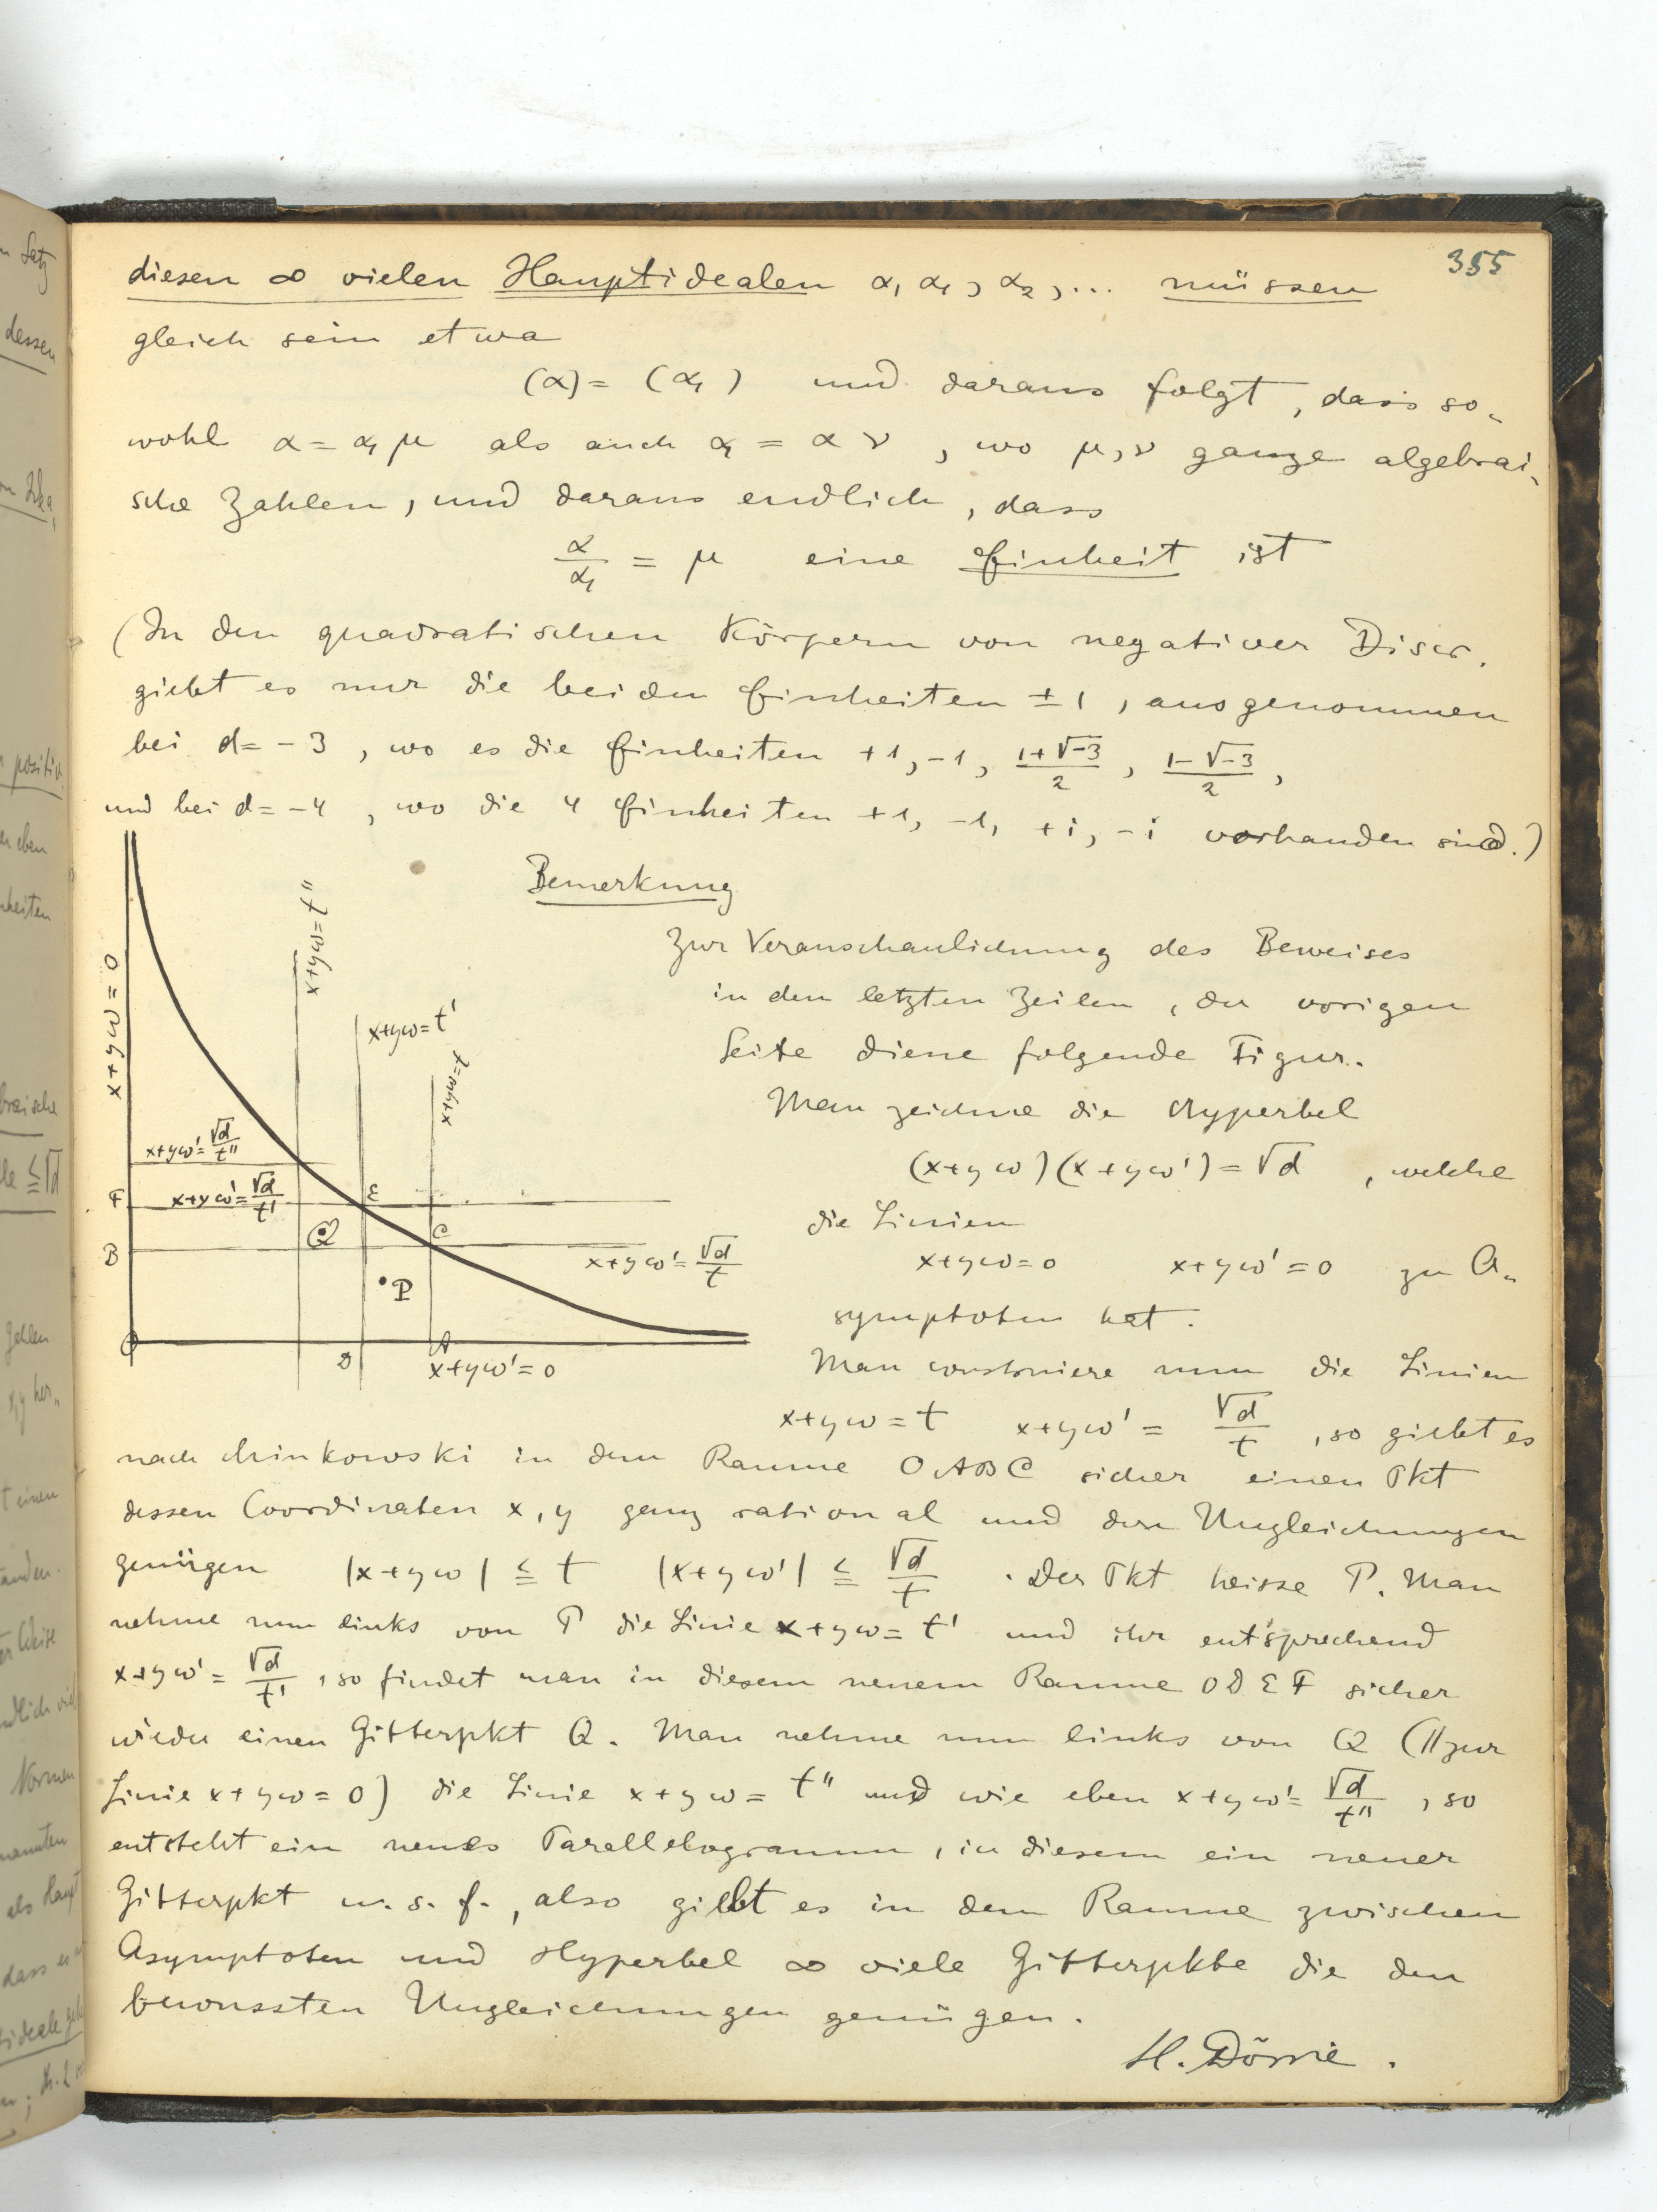 355
diesen ∞ vielen Hauptidealen α, α₁, α₂, ... müssen
gleich sein etwa
(α) = (α₁) und daraus folgt, dass so-
wohl α = α₁μ als auch α₁ = αν, wo μ, ν ganze algebrai-
sche Zahlen, und daraus endlich, dass
α/α₁ = μ eine Einheit ist
(In den quadratischen Körpern von negativer Discr.
giebt es nur die beiden Einheiten ±1, ausgenommen
bei d = -3, wo es die Einheiten +1, -1, (1+√-3)/2, (1-√-3)/2,
und bei d = -4, wo die 4 Einheiten +1, -1, +i, -i vorhanden sind.)
Bemerkung
Zur Veranschaulichung des Beweises
in den letzten Zeilen, der vorigen
Seite diene folgende Figur.
Man zeichne die Hyperbel
(x+yω)(x+yω') = √d, welche
die Linien
x+yω=0 x+yω'=0 zu A-
symptoten hat.
Man construiere nun die Linien
x+yω = t x+yω' = √d/t, so giebt es
x+yω = 0
x+yω=t''
x+yω=t'
x+yω=t
x+yω'=√d/t''
F x+yω'=√d/t' E
Q C
B x+yω'=√d/t
P
O D A
x+yω'=0
nach Minkowski in dem Raume OABC sicher einen Pkt
dessen Coordinaten x, y ganz rational und den Ungleichungen
genügen |x+yω| ≦ t |x+yω'| ≦ √d/t. Der Pkt heisse P. Man
nehme nun links von P die Linie x+yω = t' und ihr entsprechend
x+yω' = √d/t', so findet man in diesem neuem Raume ODEF sicher
wieder einen Gitterpkt Q. Man nehme nun links von Q (|| zur
Linie x+yω = 0) die Linie x+yω = t'' und wie eben x+yω' = √d/t'', so
entsteht ein neues Parellelogramm, in diesem ein neuer
Gitterpkt u. s. f., also giebt es in dem Raume zwischen
Asymptoten und Hyperbel ∞ viele Gitterpkte die den
bewussten Ungleichungen genügen.
H. Dörrie.